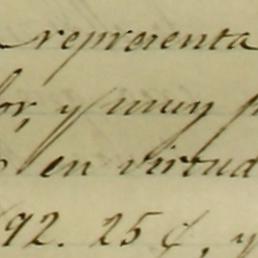 representa
or, y muy
en virtud
92. 25 ¢, y